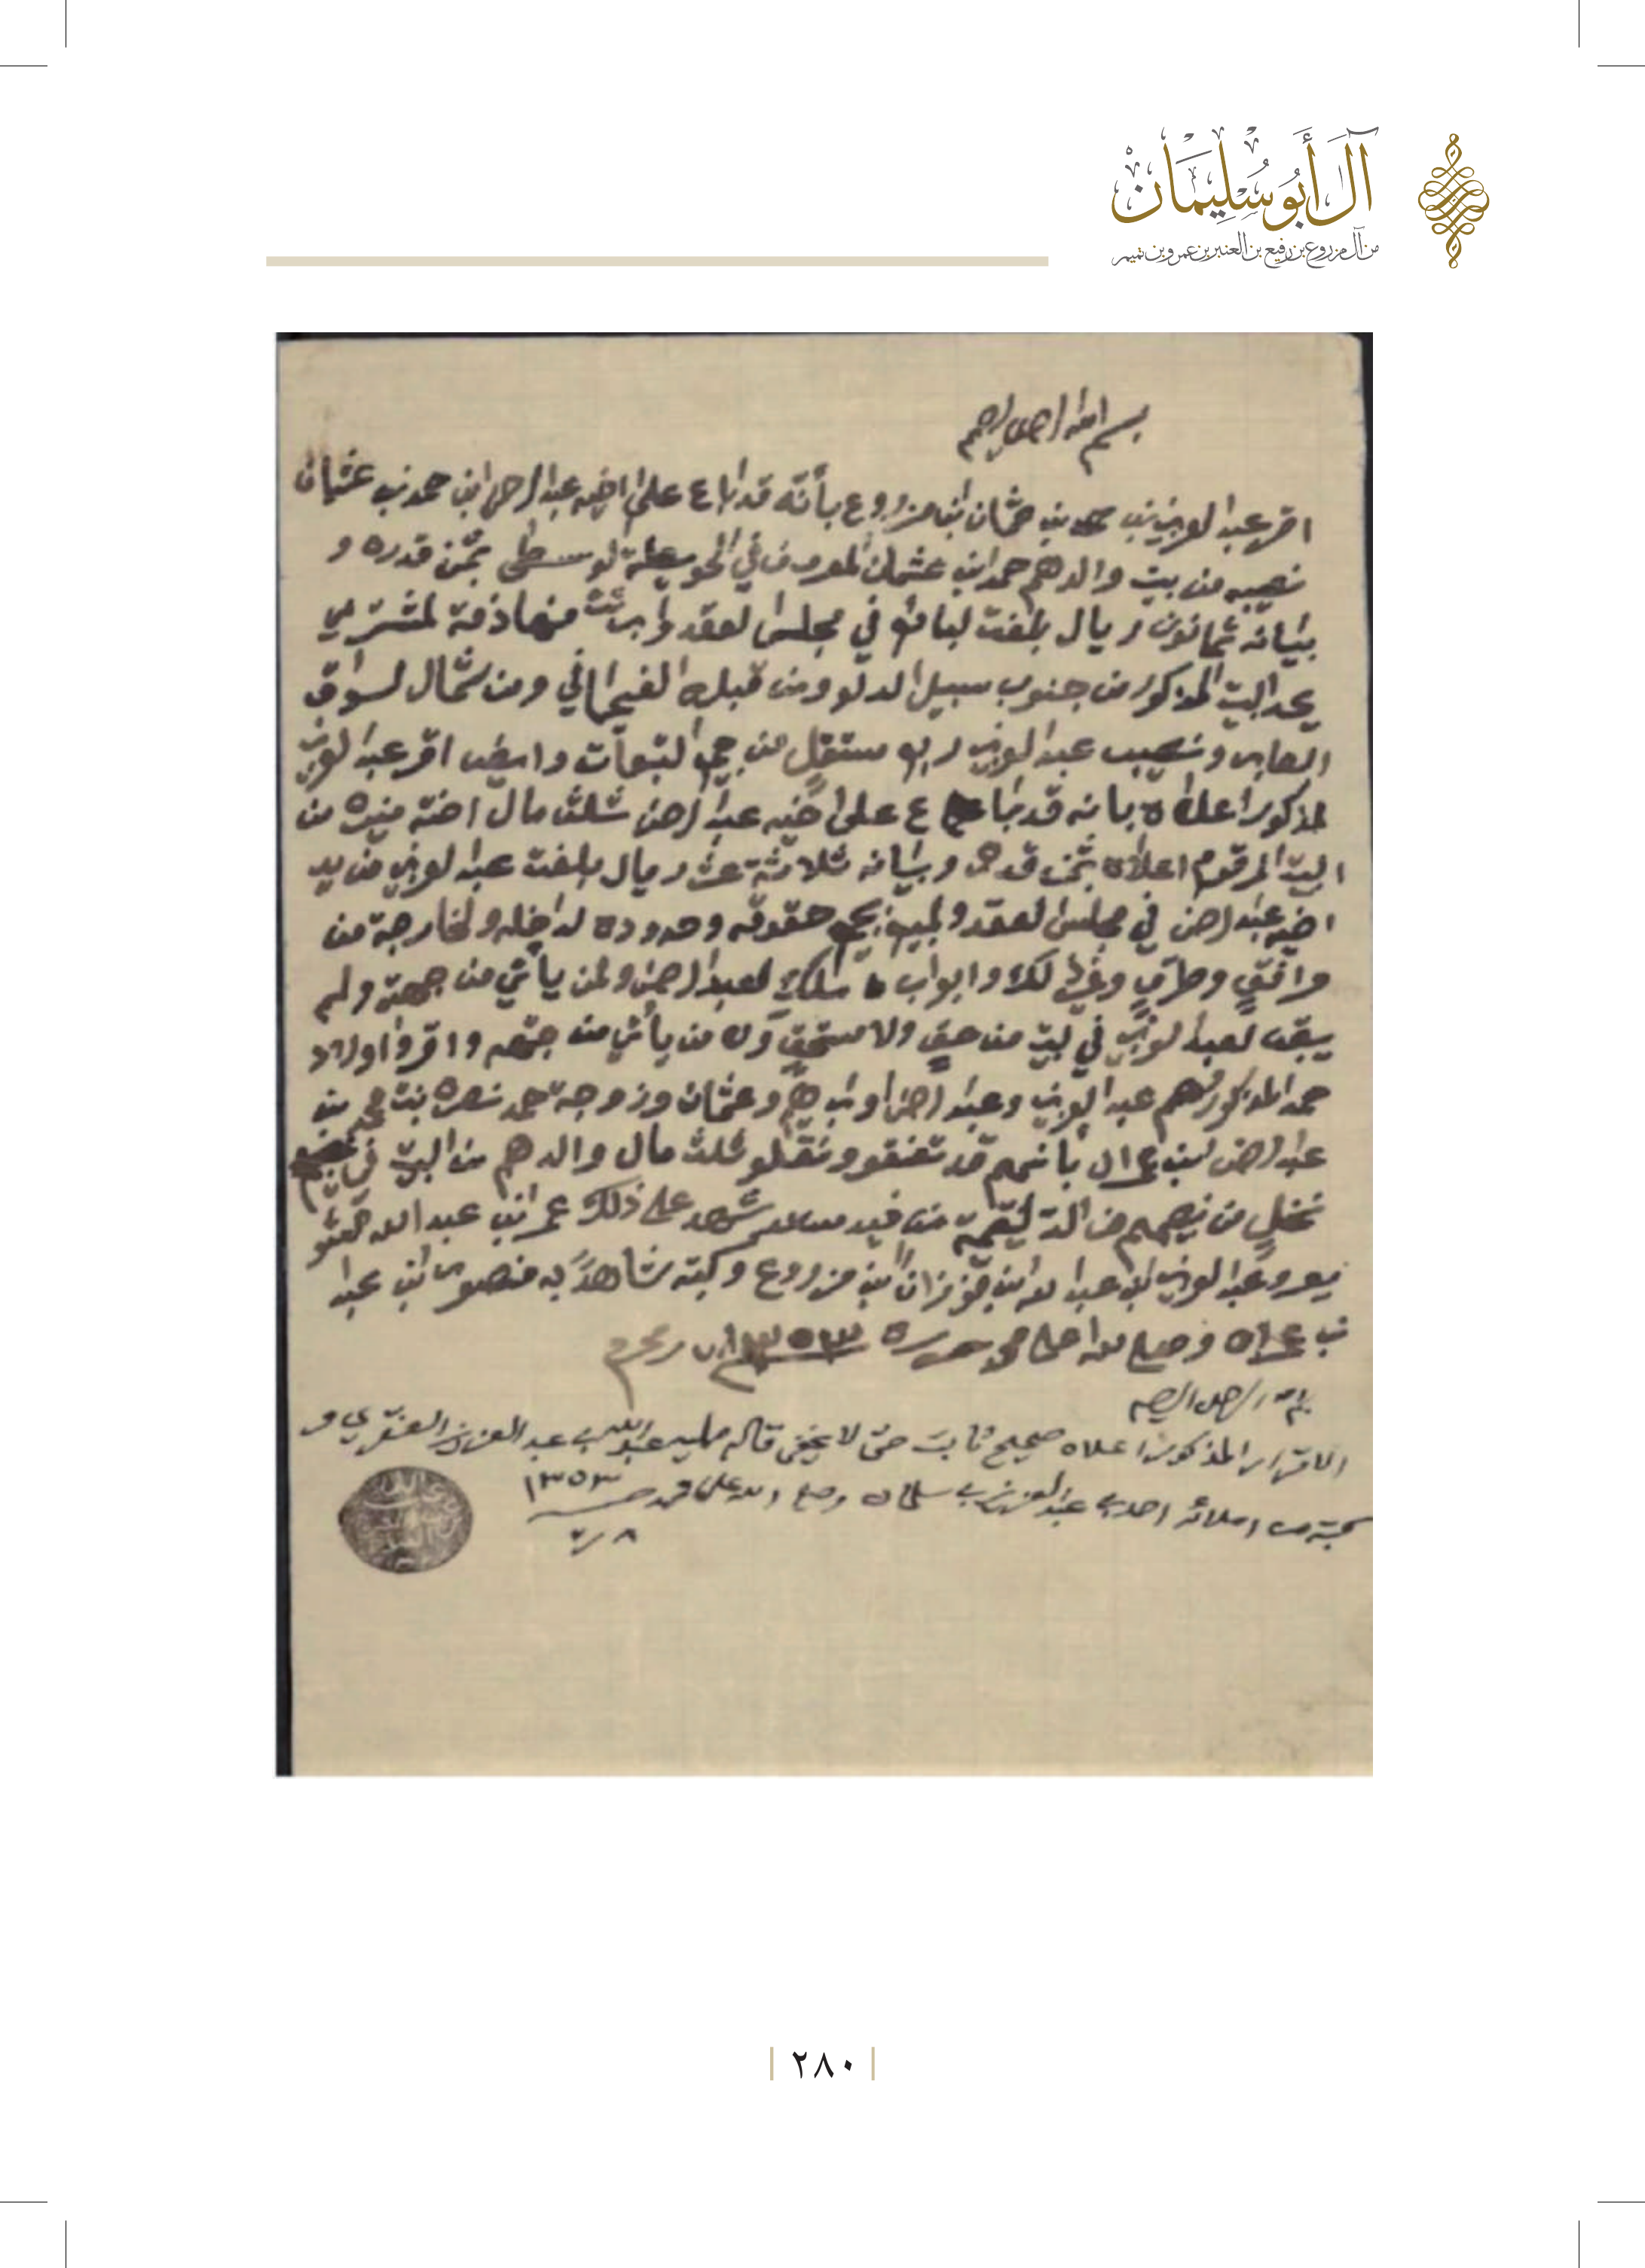 آل أبو سليمان
من آل مزروع بن رفيع بن العنبر بن عمرو بن تميم
بسم الله الرحمن الرحيم
اقر عبد العزيز بن حمد بن عثمان ابن مزروع بأنه قد اباع على اخيه عبد الرحمن ابن حمد بن عثمان
نصيبه من بيت والدهم حمد ابن عثمان المعروف في الحويطة لوسطى بثمن قدره و
بيانه ثمانون ريال بلغت لبائع في مجلس لعقد وابرئت منها ذمة لمشتري
يحد البيت المذكور من جنوب سبيل الدلو ومن قبله الفيحاني ومن شمال لسواق
العابر ونصيب عبد العزيز ربع مستقل من جميع التبعات وايضا اقر عبد العزيز
لمذكور اعلاه بانه قد باع على اخيه عبد الرحمن ثلث مال اخته منيره من
البيت المرقوم اعلاه بثمن قدره وبيانه ثلاثة عشر ريال بلغت عبد لعزيز من يد
اخيه عبد الرحمن في مجلس لعقد ولمبيع بجميع حقوقه وحدوده لداخله ولخارجة من
مرافق وطرق وغير ذلك وابواب ملك لعبد الرحمن ولمن يأتي من جهته ولم
يبقى لعبد لعزيز في لبيت من حق ولا مستحق ولا من يأتي من جهته واقروا اولاد
حمد المذكور هم عبد العزيز وعبد الرحمن وابراهيم وعثمان وزوجة حمد نصره بنت محمد بن
عبد الرحمن بأنهم قد تفقو ونقلو ثلث مال والدهم من البيت في
نخل من نصيبهم من شهد على ذلك عمر ابن عبد الله
وعبد لعزيز ابن عبد الله ابن فوزان ابن مزروع وكتبه شاهدا به منصور ابن عبد
وصلى لله على محمد ١٣٥٣ محرم
بسم الله الرحمن الرحيم
الاقرار المذكور اعلاه صحيح ثابت حتى لا يخفى قاله ممليه عبد الله بن عبد العزيز العنقري و
كتبه من املائه احمد بن عبد العزيز بن سلمان وصلى الله على محمد ١٣٥٣
٢٨٠